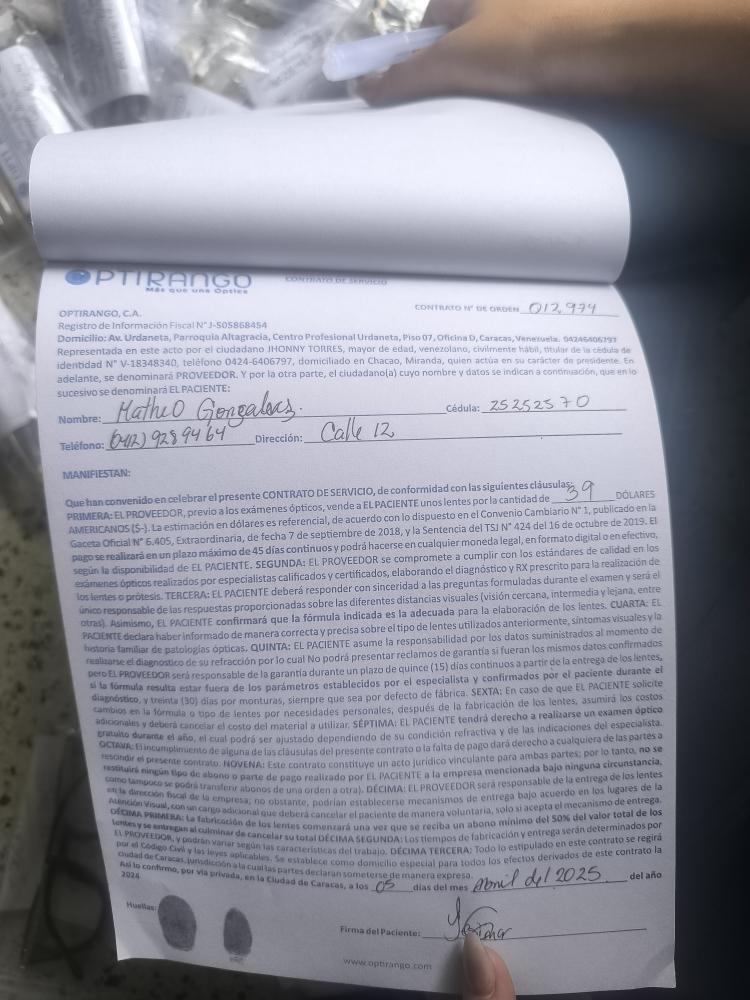 OPTIRANGO
Más que una Óptica
CONTRATO DE SERVICIO
CONTRATO N° DE ORDEN 012,974
OPTIRANGO, C.A.
Registro de Información Fiscal N° J-505868454
Domicilio: Av. Urdaneta, Parroquia Altagracia, Centro Profesional Urdaneta, Piso 07, Oficina D, Caracas, Venezuela. 04246406797
Representada en este acto por el ciudadano JHONNY TORRES, mayor de edad, venezolano, civilmente hábil, titular de la cédula de
identidad N° V-18348340, teléfono 0424-6406797, domiciliado en Chacao, Miranda, quien actúa en su carácter de presidente. En
adelante, se denominará PROVEEDOR. Y por la otra parte, el ciudadano(a) cuyo nombre y datos se indican a continuación, que en lo
sucesivo se denominará EL PACIENTE:
Nombre: Matheo Gonzalez. Cédula: 25252570
Teléfono: (042) 928 9464 Dirección: Calle 12
MANIFIESTAN:
Que han convenido en celebrar el presente CONTRATO DE SERVICIO, de conformidad con las siguientes cláusulas:
PRIMERA: EL PROVEEDOR, previo a los exámenes ópticos, vende a EL PACIENTE unos lentes por la cantidad de 39 DÓLARES
AMERICANOS ($-). La estimación en dólares es referencial, de acuerdo con lo dispuesto en el Convenio Cambiario N° 1, publicado en la
Gaceta Oficial N° 6.405, Extraordinaria, de fecha 7 de septiembre de 2018, y la Sentencia del TSJ N° 424 del 16 de octubre de 2019. El
pago se realizará en un plazo máximo de 45 días continuos y podrá hacerse en cualquier moneda legal, en formato digital o en efectivo,
según la disponibilidad de EL PACIENTE. SEGUNDA: EL PROVEEDOR se compromete a cumplir con los estándares de calidad en los
exámenes ópticos realizados por especialistas calificados y certificados, elaborando el diagnóstico y RX prescrito para la realización de
los lentes o prótesis. TERCERA: EL PACIENTE deberá responder con sinceridad a las preguntas formuladas durante el examen y será el
único responsable de las respuestas proporcionadas sobre las diferentes distancias visuales (visión cercana, intermedia y lejana, entre
otras). Asimismo, EL PACIENTE confirmará que la fórmula indicada es la adecuada para la elaboración de los lentes. CUARTA: EL
PACIENTE declara haber informado de manera correcta y precisa sobre el tipo de lentes utilizados anteriormente, síntomas visuales y la
historia familiar de patologías ópticas. QUINTA: EL PACIENTE asume la responsabilidad por los datos suministrados al momento de
realizarse el diagnostico de su refracción por lo cual No podrá presentar reclamos de garantía si fueran los mismos datos confirmados
pero EL PROVEEDOR será responsable de la garantía durante un plazo de quince (15) días continuos a partir de la entrega de los lentes,
si la fórmula resulta estar fuera de los parámetros establecidos por el especialista y confirmados por el paciente durante el
diagnóstico, y treinta (30) días por monturas, siempre que sea por defecto de fábrica. SEXTA: En caso de que EL PACIENTE solicite
cambios en la fórmula o tipo de lentes por necesidades personales, después de la fabricación de los lentes, asumirá los costos
adicionales y deberá cancelar el costo del material a utilizar. SÉPTIMA: EL PACIENTE tendrá derecho a realizarse un examen óptico
gratuito durante el año, el cual podrá ser ajustado dependiendo de su condición refractiva y de las indicaciones del especialista.
OCTAVA: El incumplimiento de alguna de las cláusulas del presente contrato o la falta de pago dará derecho a cualquiera de las partes a
rescindir el presente contrato. NOVENA: Este contrato constituye un acto jurídico vinculante para ambas partes; por lo tanto, no se
restituirá ningún tipo de abono o parte de pago realizado por EL PACIENTE a la empresa mencionada bajo ninguna circunstancia,
como tampoco se podrá transferir abonos de una orden a otra). DÉCIMA: EL PROVEEDOR será responsable de la entrega de los lentes
en la dirección fiscal de la empresa; no obstante, podrían establecerse mecanismos de entrega bajo acuerdo en los lugares de la
Atención Visual, con un cargo adicional que deberá cancelar el paciente de manera voluntaria, solo si acepta el mecanismo de entrega.
DÉCIMA PRIMERA: La fabricación de los lentes comenzará una vez que se reciba un abono mínimo del 50% del valor total de los
lentes y se entregan al culminar de cancelar su total DÉCIMA SEGUNDA: Los tiempos de fabricación y entrega serán determinados por
EL PROVEEDOR, y podrán variar según las características del trabajo. DÉCIMA TERCERA: Todo lo estipulado en este contrato se regirá
por el Código Civil y las leyes aplicables. Se establece como domicilio especial para todos los efectos derivados de este contrato la
ciudad de Caracas, jurisdicción a la cual las partes declaran someterse de manera expresa.
Así lo confirmo, por vía privada, en la Ciudad de Caracas, a los 05 días del mes Abril del 2025 del año
2024
Huellas:
Firma del Paciente:
www.optirango.com